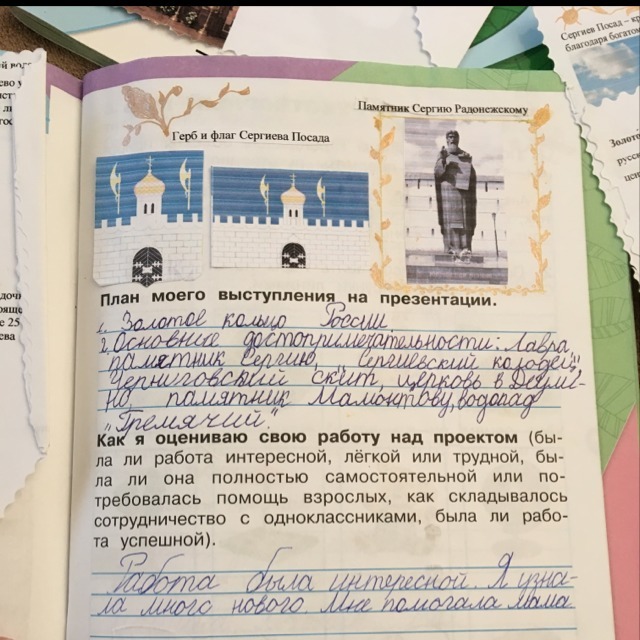 Сергиев Посад – кр
благодаря богатом
Памятник Сергию Радонежскому
Герб и флаг Сергиева Посада
Золото
русск
цен
План моего выступления на презентации.
1. Золотое кольцо России
2. Основные достопримечательности: Лавра,
памятник Сергию, "Сергиевский колодец",
Черниговский скит, церковь в Деули-
но памятник Мамонтову, водопад
"Гремячий".
Как я оцениваю свою работу над проектом (бы-
ла ли работа интересной, лёгкой или трудной, бы-
ла ли она полностью самостоятельной или по-
требовалась помощь взрослых, как складывалось
сотрудничество с одноклассниками, была ли рабо-
та успешной).
Работа была интересной. Я узна-
ла много нового. Мне помогала мама